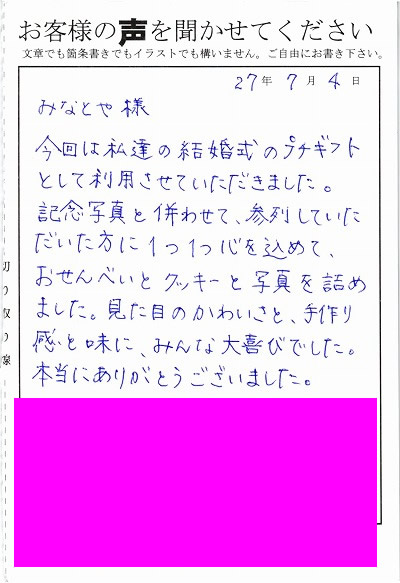 お客様の声を聞かせてください
文章でも箇条書きでもイラストでも構いません。ご自由にお書き下さい。
27年 7月 4日
みなとや様
今回は私達の結婚式のプチギフト
として利用させていただきました。
記念写真と併わせて、参列していた
だいた方に1つ1つ心を込めて、
おせんべいとクッキーと写真を詰め
ました。見た目のかわいさと、手作り
感と味に、みんな大喜びでした。
本当にありがとうございました。
切り取り線